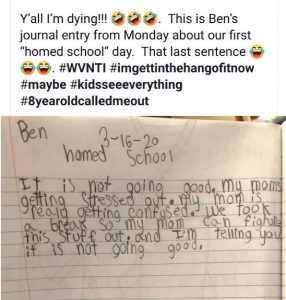 Y'all I'm dying!!! 🤣🤣🤣. This is Ben's
journal entry from Monday about our first
"homed school" day. That last sentence 😂
😂😂. #WVNTI #imgettinthehangofitnow
#maybe #kidsseeeverything
#8yearoldcalledmeout
Ben
3-16-20
homed School
It is not going good. my moms
getting stressed out. My mom is
realy getting confused. We took
a break so my mom can figure
this stuff out. and I'm telling you
it is not going good.